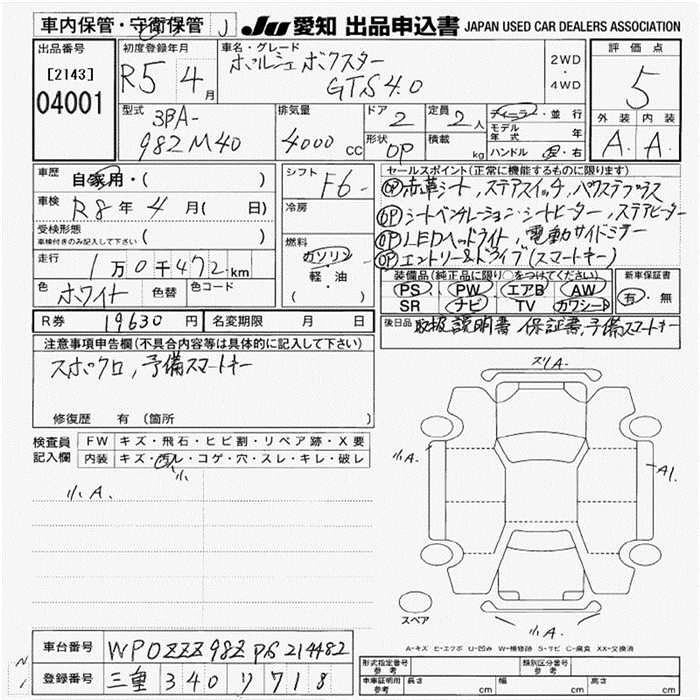 車内保管・守衛保管 J
JU 愛知 出品申込書 JAPAN USED CAR DEALERS ASSOCIATION
出品番号
[2143]
04001
初度登録年月
R5 4月
車名・グレード
ポルシェ ボクスター
GTS4.0
2WD
・
4WD
評価点
5
外装 内装
A. A.
型式
3BA-
982M40
排気量
4000cc
ドア
2
定員
2人
形状
OP
積載
kg
ディーラー・並行
モデル年式 年
ハンドル 左・右
車歴
自家用・( )
車検
R8年4月( 日)
受検形態
車検付きのみ記入して下さい ( )
走行
1万0千472km
色
ホワイト
色替
色コード
シフト
F6-
冷房
燃料
ガソリン
軽・油
( )
セールスポイント(正常に機能するものに限ります)
OP 赤革シート,ステアスイッチ,パワステプラス
OP シートベンチレーション・シートヒーター,ステアヒーター
OP LEDヘッドライト,電動サイドミラー
OP エントリー&ドライブ(スマートキー)
装備品(純正品に限り○をつけてください)
PS PW エアB AW
SR ナビ TV カワシート
新車保証書
有・無
後日品 取扱説明書 保証書,予備スマートキー
R券 19630円
名変期限 月 日
注意事項申告欄(不具合内容等は具体的に記入して下さい)
スポクロ,予備スマートキー
修復歴 有(箇所 )
検査員
記入欄
FW キズ・飛石・ヒビ割・リペア跡・X要
内装 キズ・汚レ・コゲ・穴・スレ・キレ・破レ
小
小A.
スリA.
小A.
A1.
小A.
スペア
A-キズ E-エクボ U-凹み W-補修跡 S-サビ C-腐食 XX-交換済
車台番号 WP0ZZZ98ZPS214482
登録番号 三重 340 リ 718
形式指定番号
参考
類別区分番号
参考
車庫証明用
参考
長さ cm
幅 cm
高さ cm